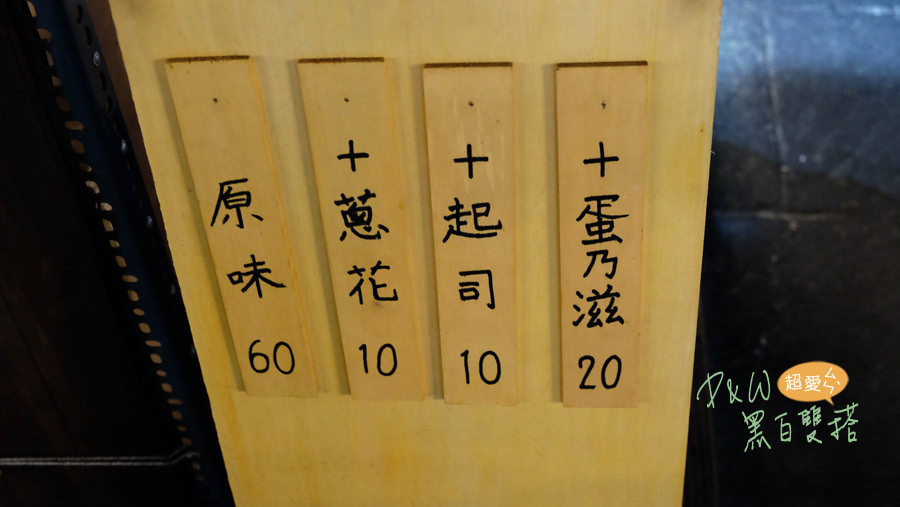 原味 60
+蔥花 10
+起司 10
+蛋乃滋 20
P&W 超愛ㄙㄅ
黑白雙搭